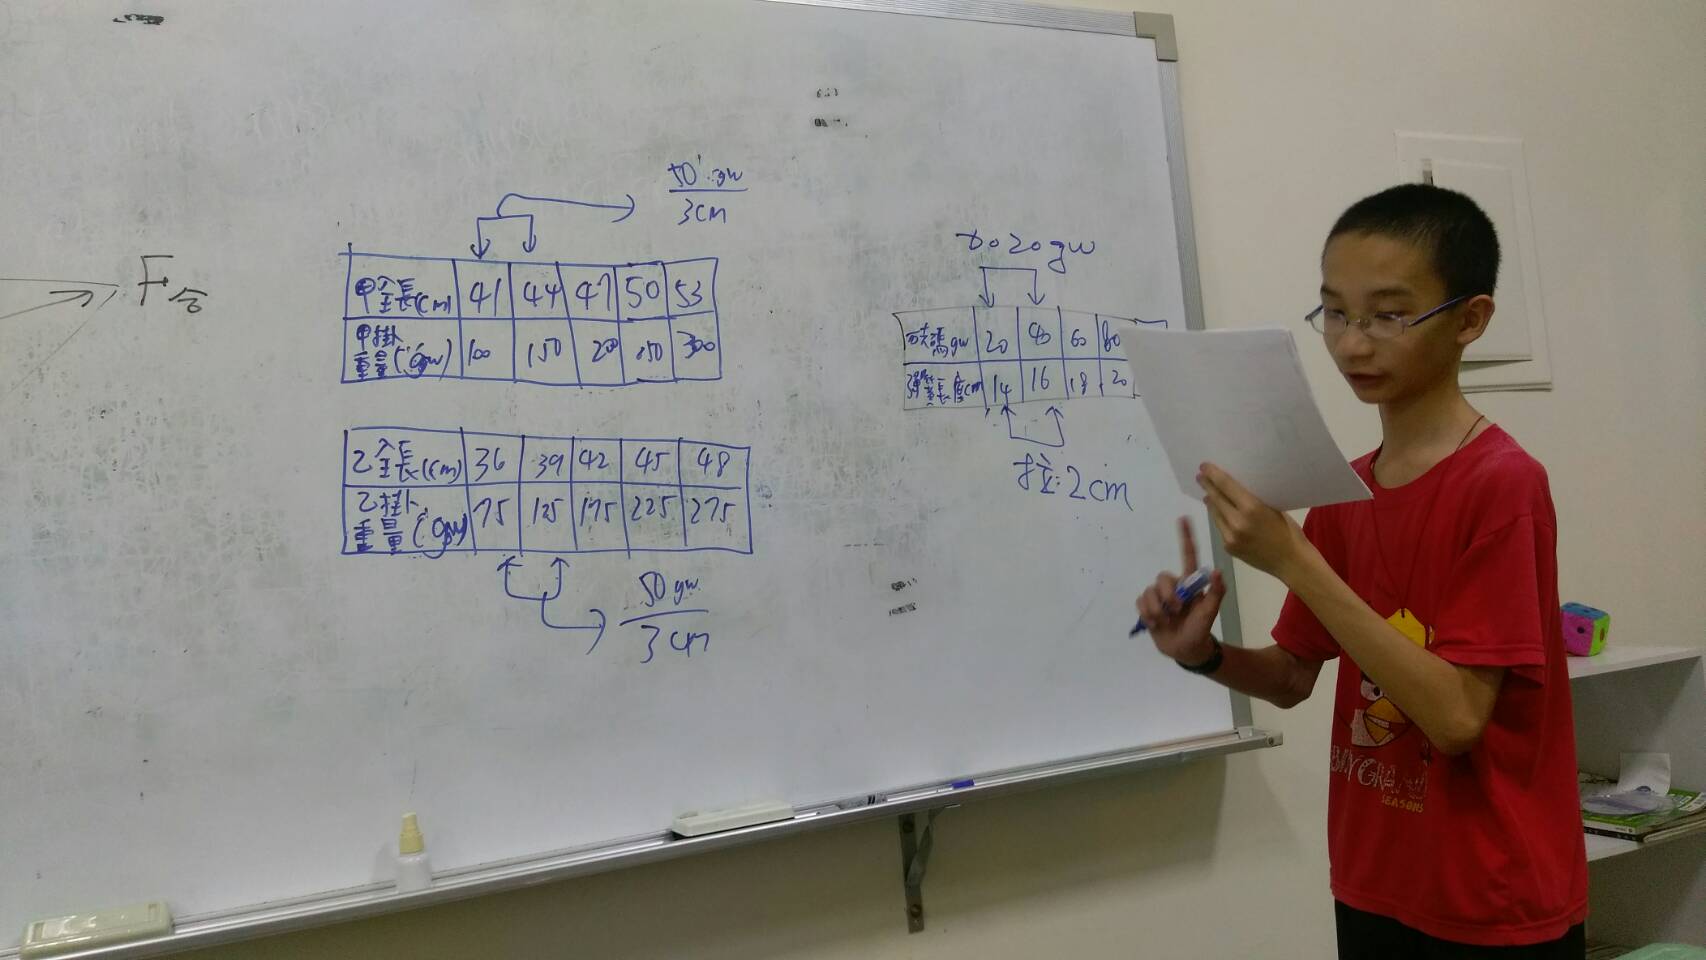 F合
50 gw
3cm
甲全長(cm) 41 44 47 50 53
甲掛
重量(gw) 100 150 200 250 300
乙全長(cm) 36 39 42 45 48
乙掛
重量(gw) 75 125 175 225 275
50 gw
3 cm
20gw
砝碼gw 20 40 60 80
彈簧長度cm 14 16 18 20
拉2cm
SEASONS